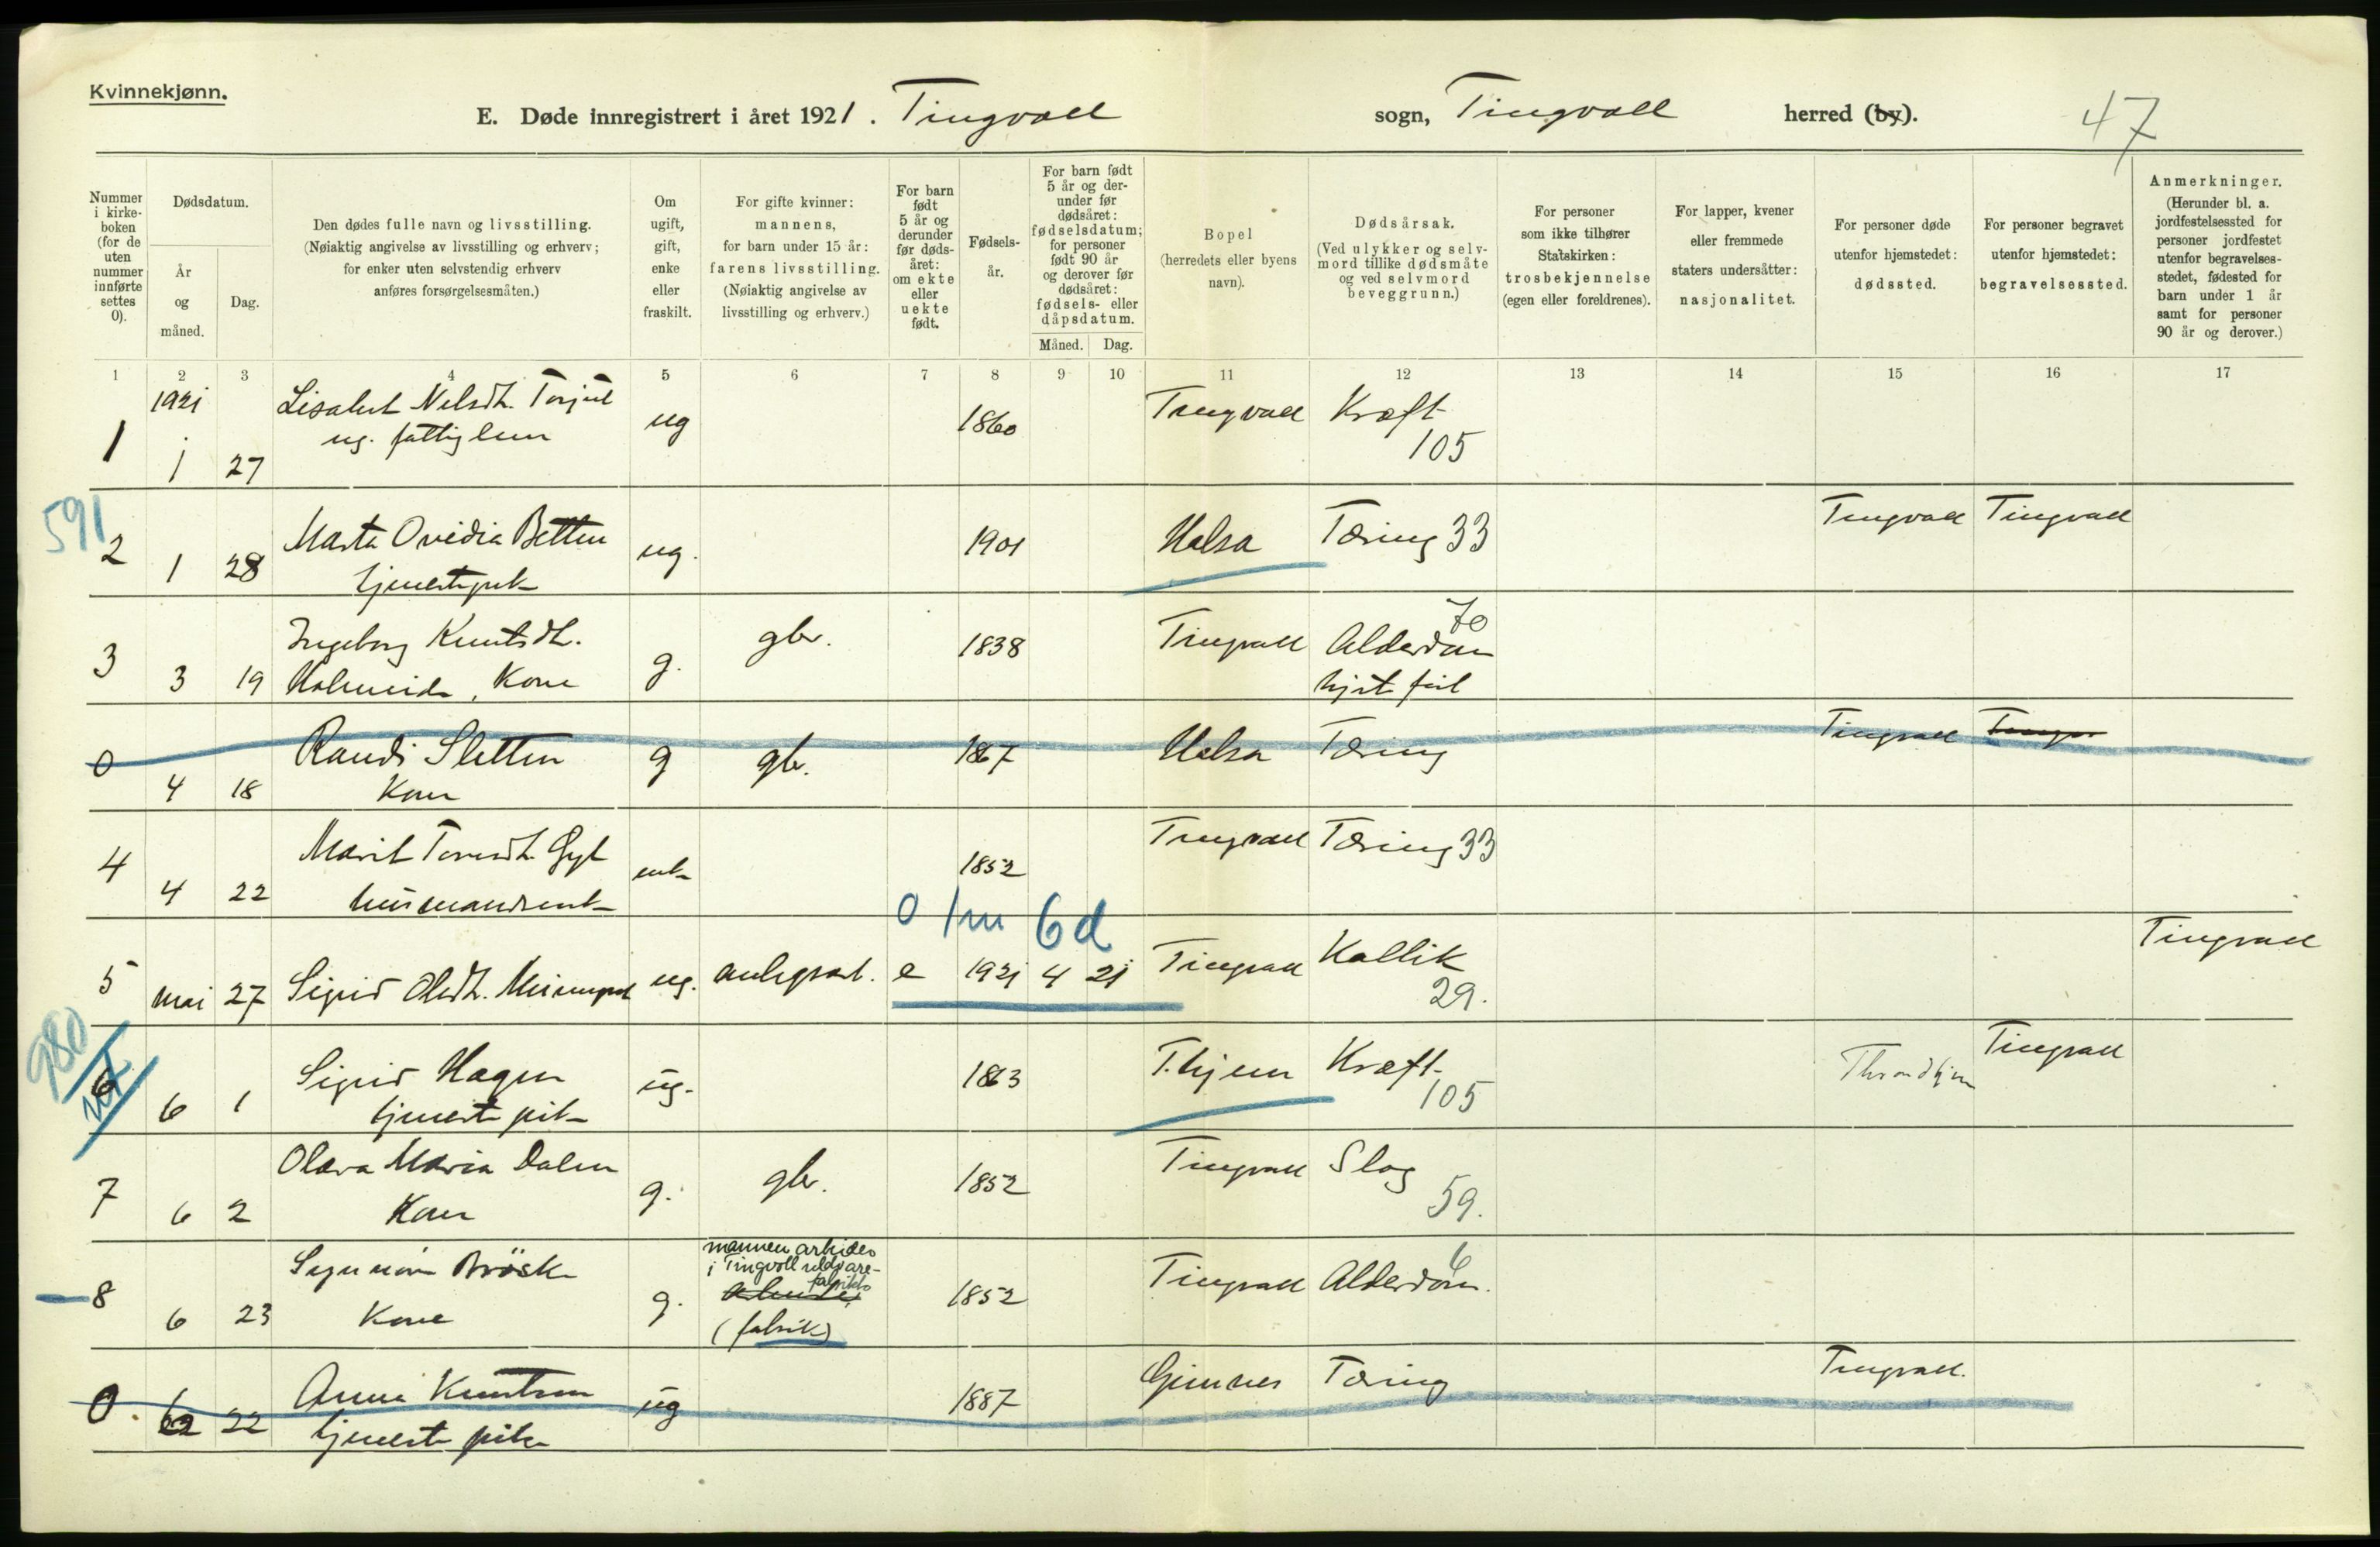 Kvinnekjønn.
E. Døde innregistrert i året 1921. Tingvoll sogn, Tingvoll herred (by).
47
Nummer i kirke-boken (for de uten nummer innførte settes 0).
Dødsdatum.
År og måned.
Dag.
Den dødes fulle navn og livsstilling.
(Nøiaktig angivelse av livsstilling og erhverv;
for enker uten selvstendig erhverv
anføres forsørgelsesmåten.)
Om ugift, gift, enke eller fraskilt.
For gifte kvinner:
mannens,
for barn under 15 år:
farens livsstilling.
(Nøiaktig angivelse av
livsstilling og erhverv.)
For barn født 5 år og derunder før døds-året: om ekte eller uekte født.
Fødsels-år.
For barn født
5 år og der-
under før
dødsåret:
fødselsdatum;
for personer
født 90 år
og derover før
dødsåret:
fødsels- eller
dåpsdatum.
Måned. Dag.
Bopel
(herredets eller byens
navn).
Dødsårsak.
(Ved ulykker og selv-
mord tillike dødsmåte
og ved selvmord
beveggrunn.)
For personer
som ikke tilhører
Statskirken:
trosbekjennelse
(egen eller foreldrenes).
For lapper, kvener
eller fremmede
staters undersåtter:
nasjonalitet.
For personer døde
utenfor hjemstedet:
dødssted.
For personer begravet
utenfor hjemstedet:
begravelsessted.
Anmerkninger.
(Herunder bl. a.
jordfestelsessted for
personer jordfestet
utenfor begravelses-
stedet, fødested for
barn under 1 år
samt for personer
90 år og derover.)
1 2 3 4 5 6 7 8 9 10 11 12 13 14 15 16 17
1921 Nilsdt. ug 1860 Tingvoll Kræft
1 1 27 ug. 105
591
2 1 28 Marta Ovidia Betten ug. 1901 Halsa Tæring 33 Tingvoll Tingvoll
tjenestpik
3 3 19 Ingeborg Knutsdt. g. gbr. 1838 Tingvoll Alderdom 70
Kone hjertefeil
0 4 18 Randi Sletten g gbr. 1867 Halsa Tæring Tingvoll
Kone
4 4 22 Marit enk 1852 Tingvoll Tæring 33
husmandsenk
0 1m 6d
5 mai 27 Sigrid Olsdt. ug. e 1921 4 21 Tingvoll Kollik Tingvoll
29.
980
6 6 1 Sigrid Hagen ug. 1863 T.hjem Kræft Throndhjem Tingvoll
tjeneste pik 105
7 6 2 Olava Maria Dalen g. gbr. 1852 Tingvoll Slag
Kone 59.
8 6 23 Brøsk g. mannen arbider 1852 Tingvoll Alderdom. 6
i Tingvoll uldvare-
fabrikk
Kone (fabrik)
0. 6 22 Anna Knutsen ug 1887 Gimnes Tæring Tingvoll.
tjeneste pike